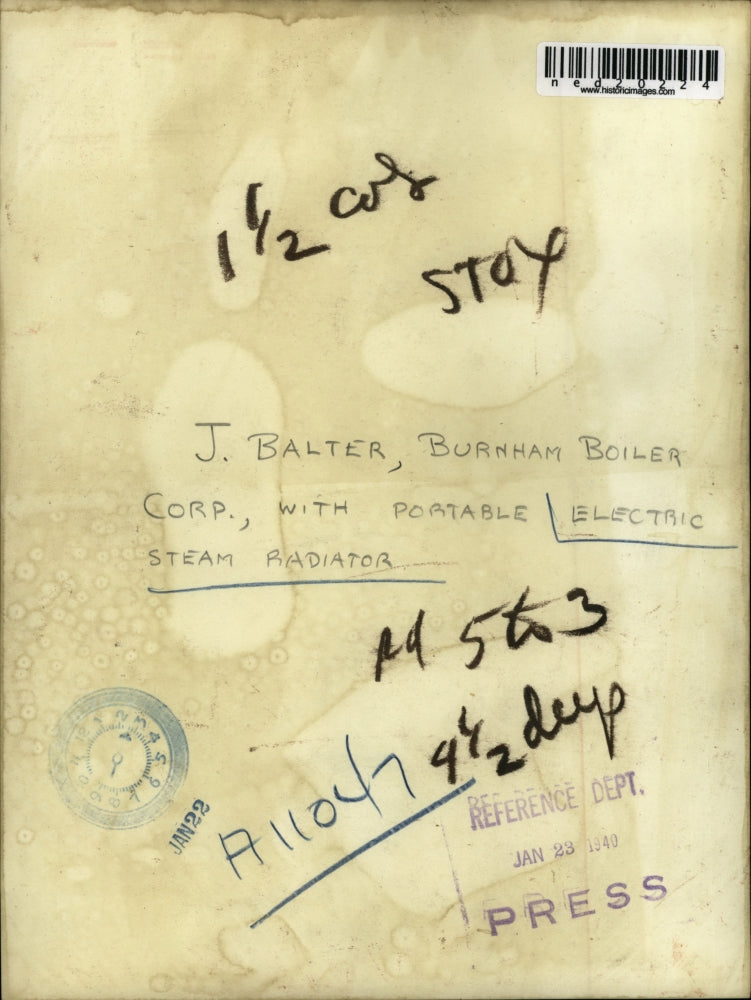 ned20224
www.historicimages.com
1 1/2 cols
J. BALTER, BURNHAM BOILER
CORP., WITH PORTABLE ELECTRIC
STEAM RADIATOR
5 to 3
4 1/2 deep
JAN 22
REFERENCE DEPT.
JAN 23 1940
PRESS